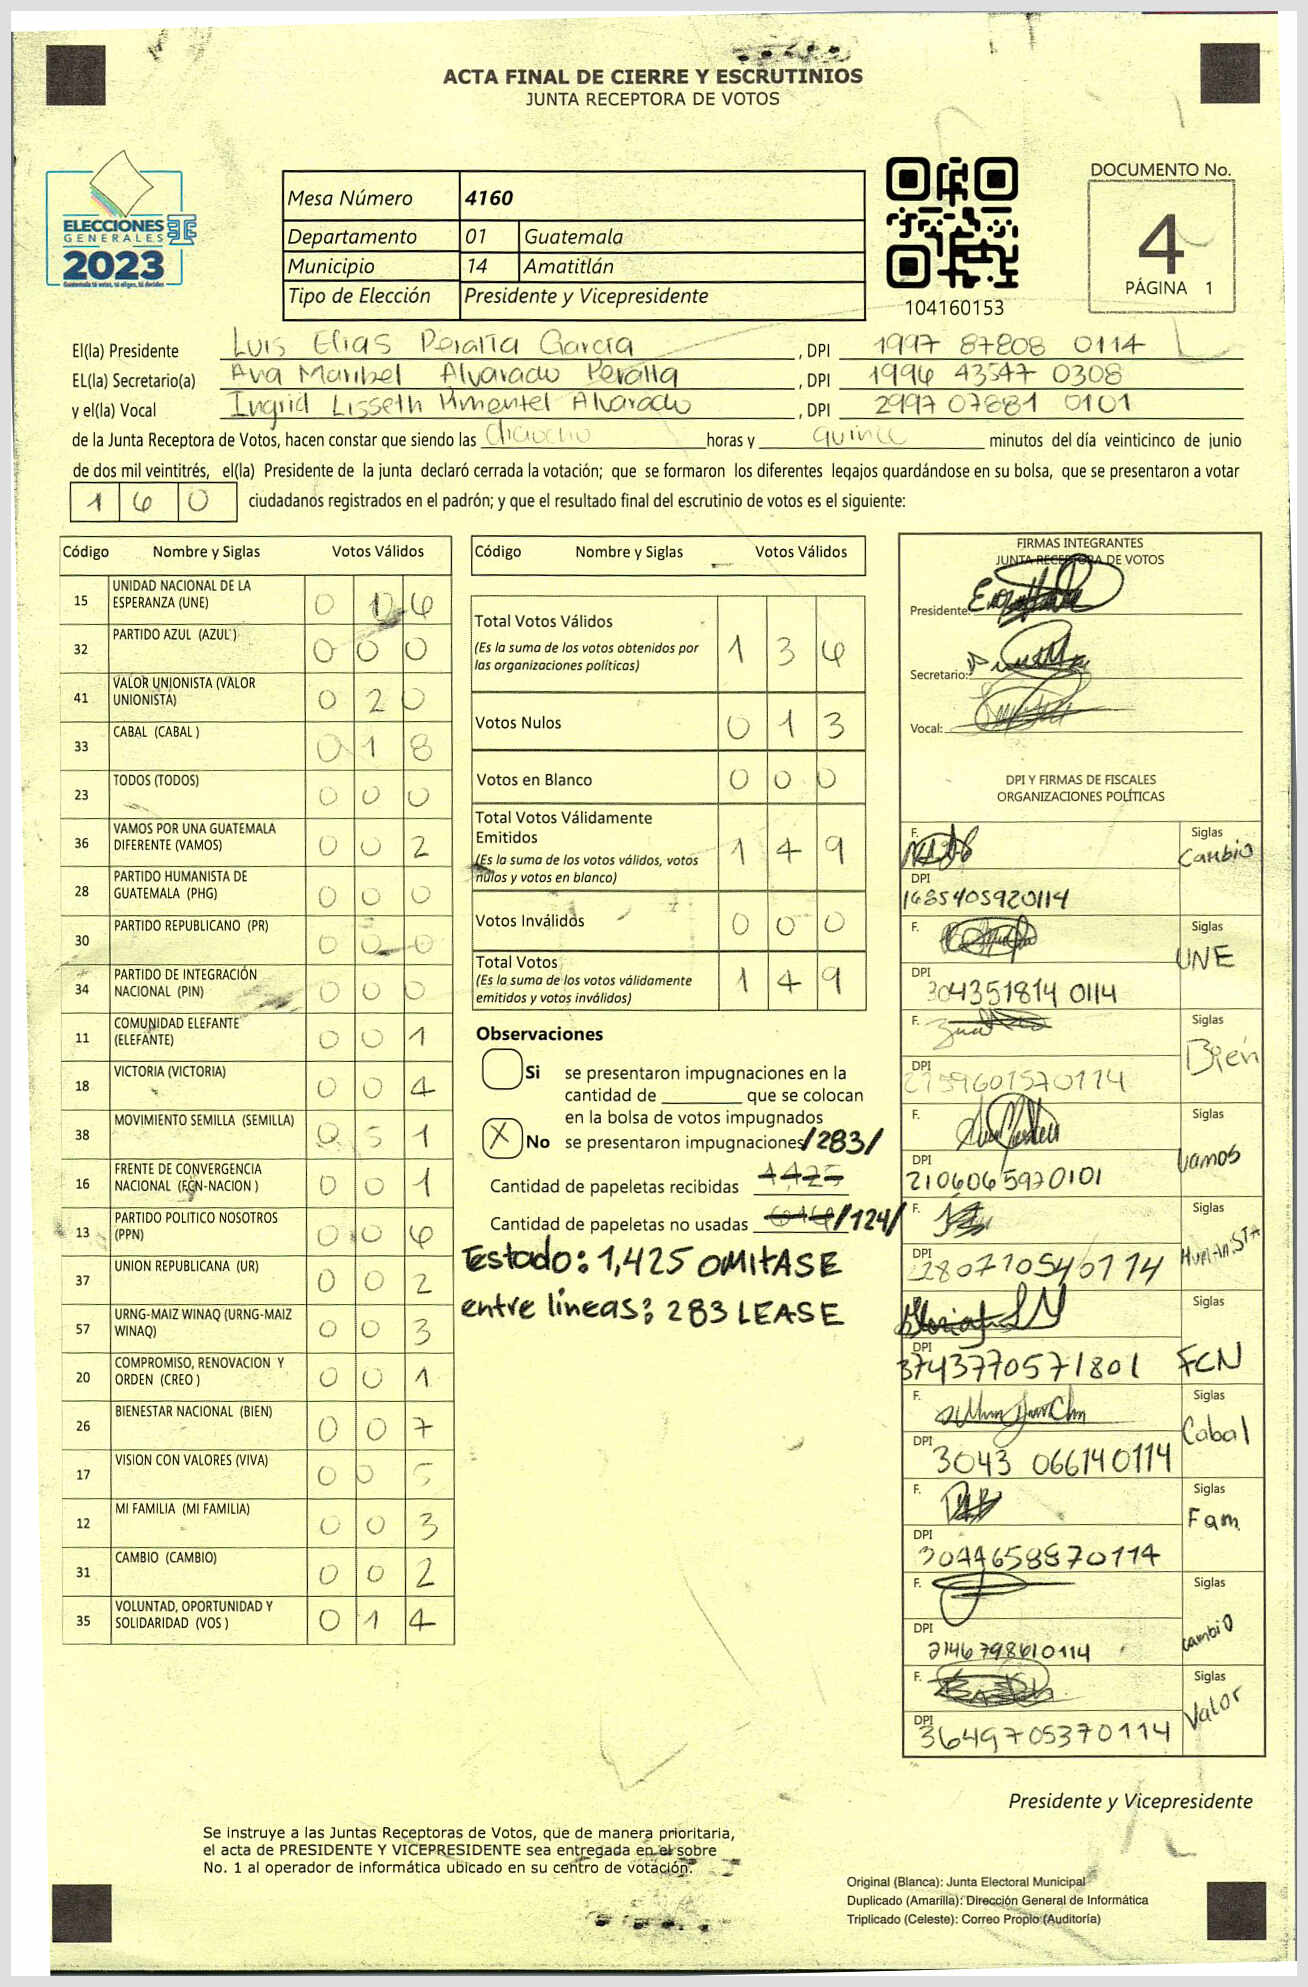 ACTA FINAL DE CIERRE Y ESCRUTINIOS
JUNTA RECEPTORA DE VOTOS
ELECCIONES
GENERALES
2023
Guatemala tú votas, tú eliges, tú decides
Mesa Número 4160
Departamento 01 Guatemala
Municipio 14 Amatitlán
Tipo de Elección Presidente y Vicepresidente
104160153
DOCUMENTO No.
4
PÁGINA 1
El(la) Presidente Luis Elias Peralta Garcia , DPI 1997 87808 0114
EL(la) Secretario(a) Ava Maribel Alvarado Peralta , DPI 1996 43547 0308
y el(la) Vocal Ingrid Lisseth Pimentel Alvarado , DPI 2997 07881 0101
de la Junta Receptora de Votos, hacen constar que siendo las horas y quince minutos del día veinticinco de junio
de dos mil veintitrés, el(la) Presidente de la junta declaró cerrada la votación; que se formaron los diferentes legajos guardándose en su bolsa, que se presentaron a votar
1 6 0 ciudadanos registrados en el padrón; y que el resultado final del escrutinio de votos es el siguiente:
Código Nombre y Siglas Votos Válidos
15 UNIDAD NACIONAL DE LA ESPERANZA (UNE) 0 6
32 PARTIDO AZUL (AZUL ) 0 0 0
41 VALOR UNIONISTA (VALOR UNIONISTA) 0 2 0
33 CABAL (CABAL ) 0 1 8
23 TODOS (TODOS) 0 0 0
36 VAMOS POR UNA GUATEMALA DIFERENTE (VAMOS) 0 0 2
28 PARTIDO HUMANISTA DE GUATEMALA (PHG) 0 0 0
30 PARTIDO REPUBLICANO (PR) 0 0 0
34 PARTIDO DE INTEGRACIÓN NACIONAL (PIN) 0 0 0
11 COMUNIDAD ELEFANTE (ELEFANTE) 0 0 1
18 VICTORIA (VICTORIA) 0 0 4
38 MOVIMIENTO SEMILLA (SEMILLA) 0 5 1
16 FRENTE DE CONVERGENCIA NACIONAL (FCN-NACION ) 0 0 1
13 PARTIDO POLITICO NOSOTROS (PPN) 0 0 6
37 UNION REPUBLICANA (UR) 0 0 2
57 URNG-MAIZ WINAQ (URNG-MAIZ WINAQ) 0 0 3
20 COMPROMISO, RENOVACION Y ORDEN (CREO ) 0 0 1
26 BIENESTAR NACIONAL (BIEN) 0 0 7
17 VISION CON VALORES (VIVA) 0 0 5
12 MI FAMILIA (MI FAMILIA) 0 0 3
31 CAMBIO (CAMBIO) 0 0 2
35 VOLUNTAD, OPORTUNIDAD Y SOLIDARIDAD (VOS ) 0 1 4
Código Nombre y Siglas Votos Válidos
Total Votos Válidos 1 3 6
(Es la suma de los votos obtenidos por
las organizaciones políticas)
Votos Nulos 0 1 3
Votos en Blanco 0 0 0
Total Votos Válidamente
Emitidos 1 4 9
(Es la suma de los votos válidos, votos
nulos y votos en blanco)
Votos Inválidos 0 0 0
Total Votos 1 4 9
(Es la suma de los votos válidamente
emitidos y votos inválidos)
Observaciones
Si se presentaron impugnaciones en la
cantidad de ________ que se colocan
en la bolsa de votos impugnados
X No se presentaron impugnaciones /283/
Cantidad de papeletas recibidas 1425
Cantidad de papeletas no usadas /124/
Testado: 1,425 OMITASE
entre lineas: 283 LEASE
FIRMAS INTEGRANTES
JUNTA RECEPTORA DE VOTOS
Presidente:
Secretario:
Vocal:
DPI Y FIRMAS DE FISCALES
ORGANIZACIONES POLÍTICAS
F. Siglas Cambio
DPI 1685405920114
F. Siglas UNE
DPI 304351814 0114
F. Siglas Bien
DPI
F. Siglas Vamos
DPI 2106065970101
F. Siglas HUMANISTA
DPI 2807710540114
F. Siglas FCN
DPI 3743770571801
F. Siglas Cabal
DPI 3043 066140114
F. Siglas Fam
DPI 3044658870114
F. Siglas cambio
DPI 2146798610114
F. Siglas Valor
DPI 3649705370114
Presidente y Vicepresidente
Se instruye a las Juntas Receptoras de Votos, que de manera prioritaria,
el acta de PRESIDENTE Y VICEPRESIDENTE sea entregada en el sobre
No. 1 al operador de informática ubicado en su centro de votación.
Original (Blanca): Junta Electoral Municipal
Duplicado (Amarilla): Dirección General de Informática
Triplicado (Celeste): Correo Propio (Auditoría)